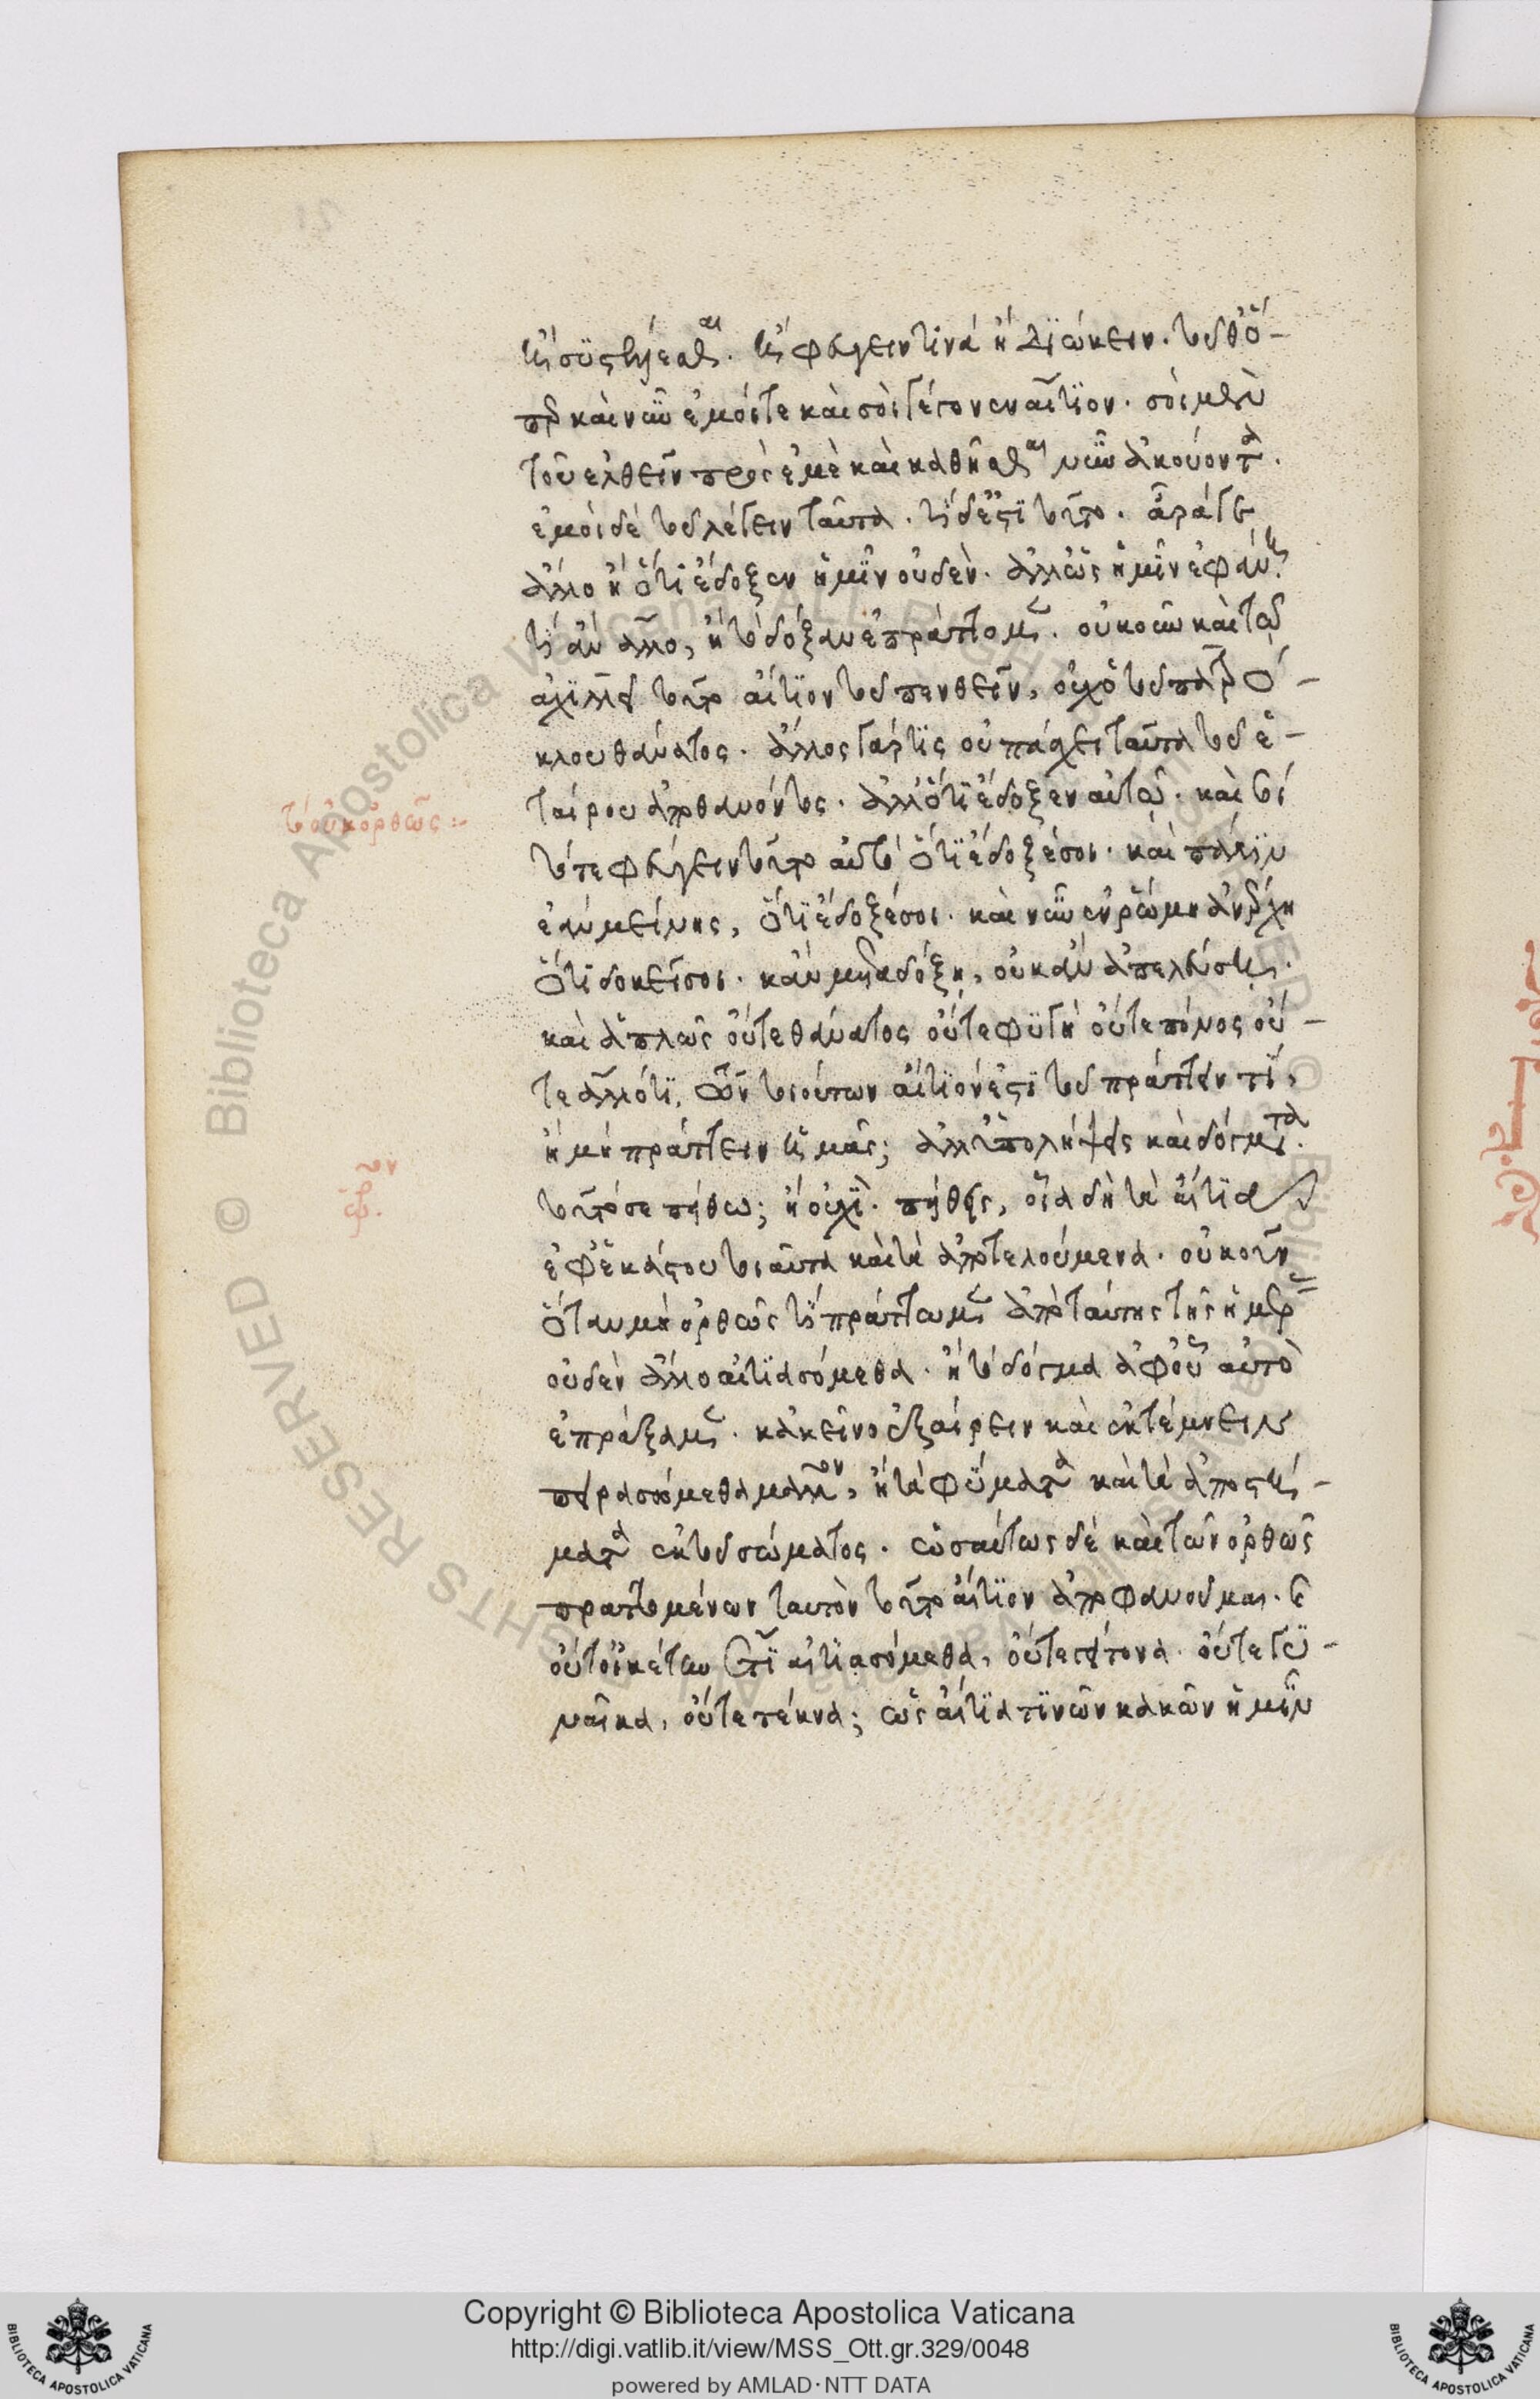 καὶ συστέλλεσθαι. καὶ φεύγειν τινά ἢ διώκειν. τοῦθ' ὅ-
περ καὶ νῦν ἐμοί τε καὶ σοὶ γέγονεν αἴτιον. σοὶ μὲν
τοῦ ἐλθεῖν πρὸς ἐμὲ καὶ καθῆσθαι νῦν ἀκούοντα.
ἐμοὶ δὲ τοῦ λέγειν ταῦτα. τί δ' ἐστὶ τοῦτο. ἆρά γε
ἄλλο ἢ ὅτι ἔδοξεν ἡμῖν οὐδέν. ἄλλως ἡμῖν ἐφάνη
τί ἂν ἄλλο, ἢ τὸ δόξαν ἐπράττομεν. οὐκοῦν καὶ τῷ
ἀχιλλεῖ τοῦτο αἴτιον τοῦ πενθεῖν, οὐχ ὁ τοῦ πατρό-
κλου θάνατος. ἄλλος γάρ τις οὐ πάσχει ταῦτα τοῦ ἑ-
ταίρου ἀποθανόντος. ἀλλ' ὅτι ἔδοξεν αὐτῷ. καὶ σοὶ
τότε φεύγειν τοῦτο αὐτὸ ὅτι ἔδοξέ σοι. καὶ πάλιν
ἐὰν μείνης, ὅτι ἔδοξέ σοι. καὶ νῦν ἐν ῥώμη ἀνέρχη
ὅτι δοκεῖ σοι. κἂν μεταδόξη, οὐκ ἂν ἀπελεύση.
καὶ ἁπλῶς οὔτε θάνατος οὔτε φυγὴ οὔτε πόνος οὔ-
τε ἄλλό τι. τῶν τοιούτων αἴτιόν ἐστι τοῦ πράττειν τι,
ἢ μὴ πράττειν ἡμᾶς; ἀλλ' ὑπολήψεις καὶ δόγματα.
τοῦτό σε πείθω; ἢ οὐχί. πείθεις, οἷα δὴ τὰ αἴτια
ἐφ' ἑκάστου τοιαῦτα καὶ τὰ ἀποτελούμενα. οὐκοῦν
ὅταν μὴ ὀρθῶς τι πράττωμεν ἀπὸ ταύτης τῆς ἡμέρας
οὐδὲν ἄλλο αἰτιασόμεθα. ἢ τὸ δόγμα ἀφ' οὗ αὐτὸ
ἐπράξαμεν. κἀκεῖνο ἐξαίρειν καὶ ἐκτέμνειν
πειρασόμεθα μᾶλλον, ἢ τὰ φύματα καὶ τὰ ἀποστή-
ματα ἐκ τοῦ σώματος. ὡσαύτως δὲ καὶ τῶν ὀρθῶς
πραττομένων ταυτὸν τοῦτο αἴτιον ἀποφανοῦμαι. καὶ
οὔτ' οἰκέτην ἔτι αἰτιασόμεθα, οὔτε γείτονα. οὔτε γυ-
ναῖκα, οὔτε τέκνα; ὡς αἴτια τινῶν κακῶν ἡμῖν
τὸ οὐκ ὀρθῶς:-
Copyright © Biblioteca Apostolica Vaticana
http://digi.vatlib.it/view/MSS_Ott.gr.329/0048
powered by AMLAD·NTT DATA